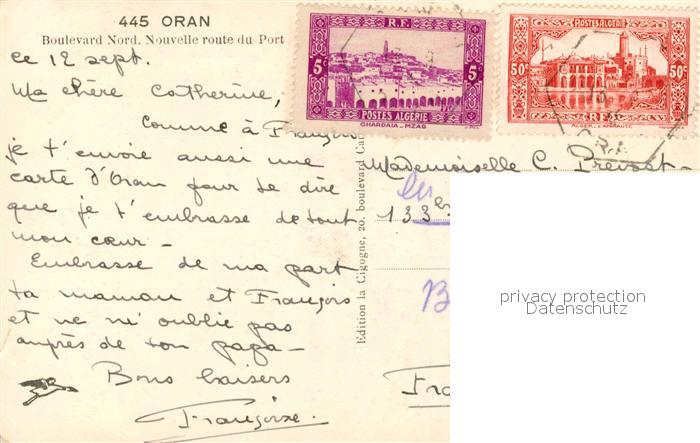 445 ORAN
Boulevard Nord. Nouvelle route du Port
ce 12 sept.
Ma chère Catherine,
Comme à François
je t'envoie aussi une
carte d'Oran pour te dire
que je t'embrasse de tout
mon cœur -
Embrasse de ma part
ta maman et François
et ne m'oublie pas
auprès de ton papa -
Bons baisers
Françoise.
Edition la Cigogne, 20, boulevard
R.F.
5c
5c
POSTES ALGÉRIE
GHARDAIA_MZAB
POSTES ALGERIE
50c
50c
R.F.
ALGER_L'AMIRAUTÉ
Mademoiselle C. Prevost
133
privacy protection
Datenschutz